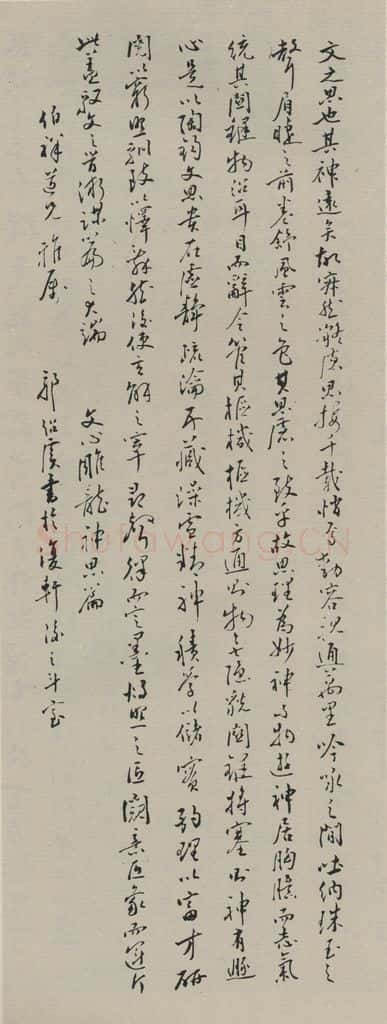 文之思也其神遠矣故寂然凝慮思接千載悄焉動容視通萬里吟咏之間吐納珠玉之
聲眉睫之前卷舒風雲之色其思慮之致乎故思理為妙神與物遊神居胸臆而志氣
統其關鍵物沿耳目而辭令管其樞機樞機方通則物無隱貌關鍵將塞則神有遯
心是以陶鈞文思貴在虛靜疏瀹五藏澡雪精神積學以儲寶酌理以富才研
閱以窮照馴致以懌辭然後使玄解之宰尋聲律而定墨燭照之匠闚意象而運斤
此蓋馭文之首術謀篇之大端 文心雕龍神思篇
伯祥道兄雅屬 郭紹虞書於復軒後之斗室
Shufawang.CN